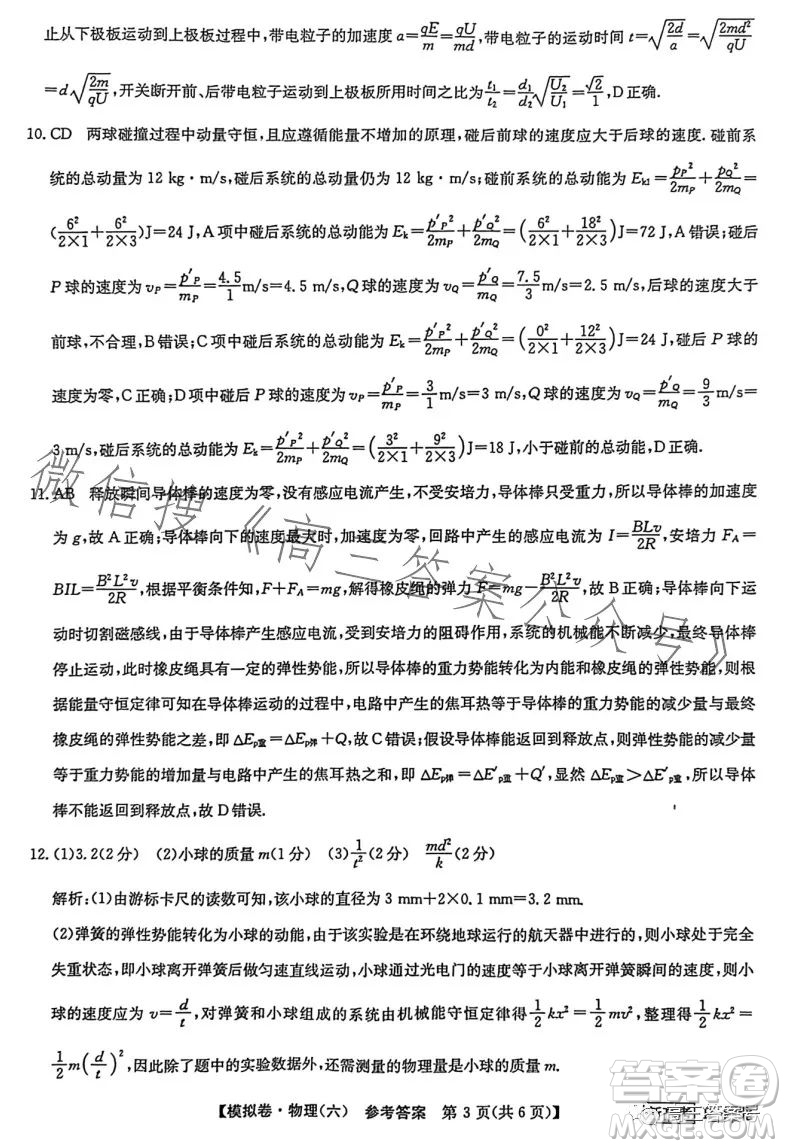 止从下极板运动到上极板过程中,带电粒子的加速度 a=qE/m=qU/md,带电粒子的运动时间 t=√(2d/a)=√(2md²/qU)
=d√(2m/qU),开关断开前、后带电粒子运动到上极板所用时间之比为 t₁/t₂=d₁/d₂√(U₂/U₁)=√2/1,D正确.
10. CD 两球碰撞过程中动量守恒,且应遵循能量不增加的原理,碰后前球的速度应大于后球的速度. 碰前系
统的总动量为 12 kg·m/s,碰后系统的总动量仍为 12 kg·m/s;碰前系统的总动能为 Eₖ₁=p_P²/2m_P+p_Q²/2m_Q=
(6²/2×1+6²/2×3)J=24 J,A 项中碰后系统的总动能为 Eₖ=p′_P²/2m_P+p′_Q²/2m_Q=(6²/2×1+18²/2×3)J=72 J,A 错误;碰后
P 球的速度为 v_P=p′_P/m_P=4.5/1 m/s=4.5 m/s,Q 球的速度为 v_Q=p′_Q/m_Q=7.5/3 m/s=2.5 m/s,后球的速度大于
前球,不合理,B 错误;C 项中碰后系统的总动能为 Eₖ=p′_P²/2m_P+p′_Q²/2m_Q=(0²/2×1+12²/2×3)J=24 J,P 球的
速度为零,C 正确;D 项中碰后 P 球的速度为 v_P=p′_P/m_P=3/1 m/s=3 m/s,Q 球的速度为 v_Q=p′_Q/m_Q=9/3 m/s=
3 m/s,碰后系统的总动能为 Eₖ=p′_P²/2m_P+p′_Q²/2m_Q=(3²/2×1+9²/2×3)J=18 J,小于碰前的总动能,D 正确.
11. AB 释放瞬间导体棒的速度为零,没有感应电流产生,不受安培力,导体棒只受重力,所以导体棒的加速度
为 g,故 A 正确;导体棒向下的速度最大时,加速度为零,回路中产生的感应电流为 I=BLv/2R,安培力 F_A=
BIL=B²L²v/2R,根据平衡条件知,F+F_A=mg,解得橡皮绳的弹力 F=mg-B²L²v/2R,故 B 正确;导体棒向下运
动时切割磁感线,由于导体棒产生感应电流,受到安培力的阻碍作用,系统的机械能不断减少,最终导体棒
停止运动,此时橡皮绳具有一定的弹性势能,所以导体棒的重力势能转化为内能和橡皮绳的弹性势能,则
根据能量守恒定律可知在导体棒运动的过程中,电路中产生的焦耳热等于导体棒的重力势能的减少量与最终
橡皮绳的弹性势能之差,即 ΔEp重=ΔEp弹+Q,故 C 错误;假设导体棒能返回到释放点,则弹性势能的减少量
等于重力势能的增加量与电路中产生的焦耳热之和,即 ΔEp弹=ΔE′p重+Q′,显然 ΔEp重>ΔE′p重,所以导体
棒不能返回到释放点,故 D 错误.
12. (1)3.2(2 分) (2)小球的质量 m(1 分) (3)1/t²(2 分) md²/k(2 分)
解析:(1)由游标卡尺的读数可知,该小球的直径为 3 mm+2×0.1 mm=3.2 mm.
(2)弹簧的弹性势能转化为小球的动能,由于该实验是在环绕地球运行的航天器中进行的,则小球处于完全
失重状态,即小球离开弹簧后做匀速直线运动,小球通过光电门的速度等于小球离开弹簧瞬间的速度,则小
球的速度应为 v=d/t,对弹簧和小球组成的系统由机械能守恒定律得1/2kx²=1/2mv²,整理得1/2kx²=
1/2m(d/t)²,因此除了题中的实验数据外,还需测量的物理量是小球的质量 m.
【模拟卷·物理(六) 参考答案 第 3 页(共 6 页)】
微信搜《高三答案公众号》
答案圈